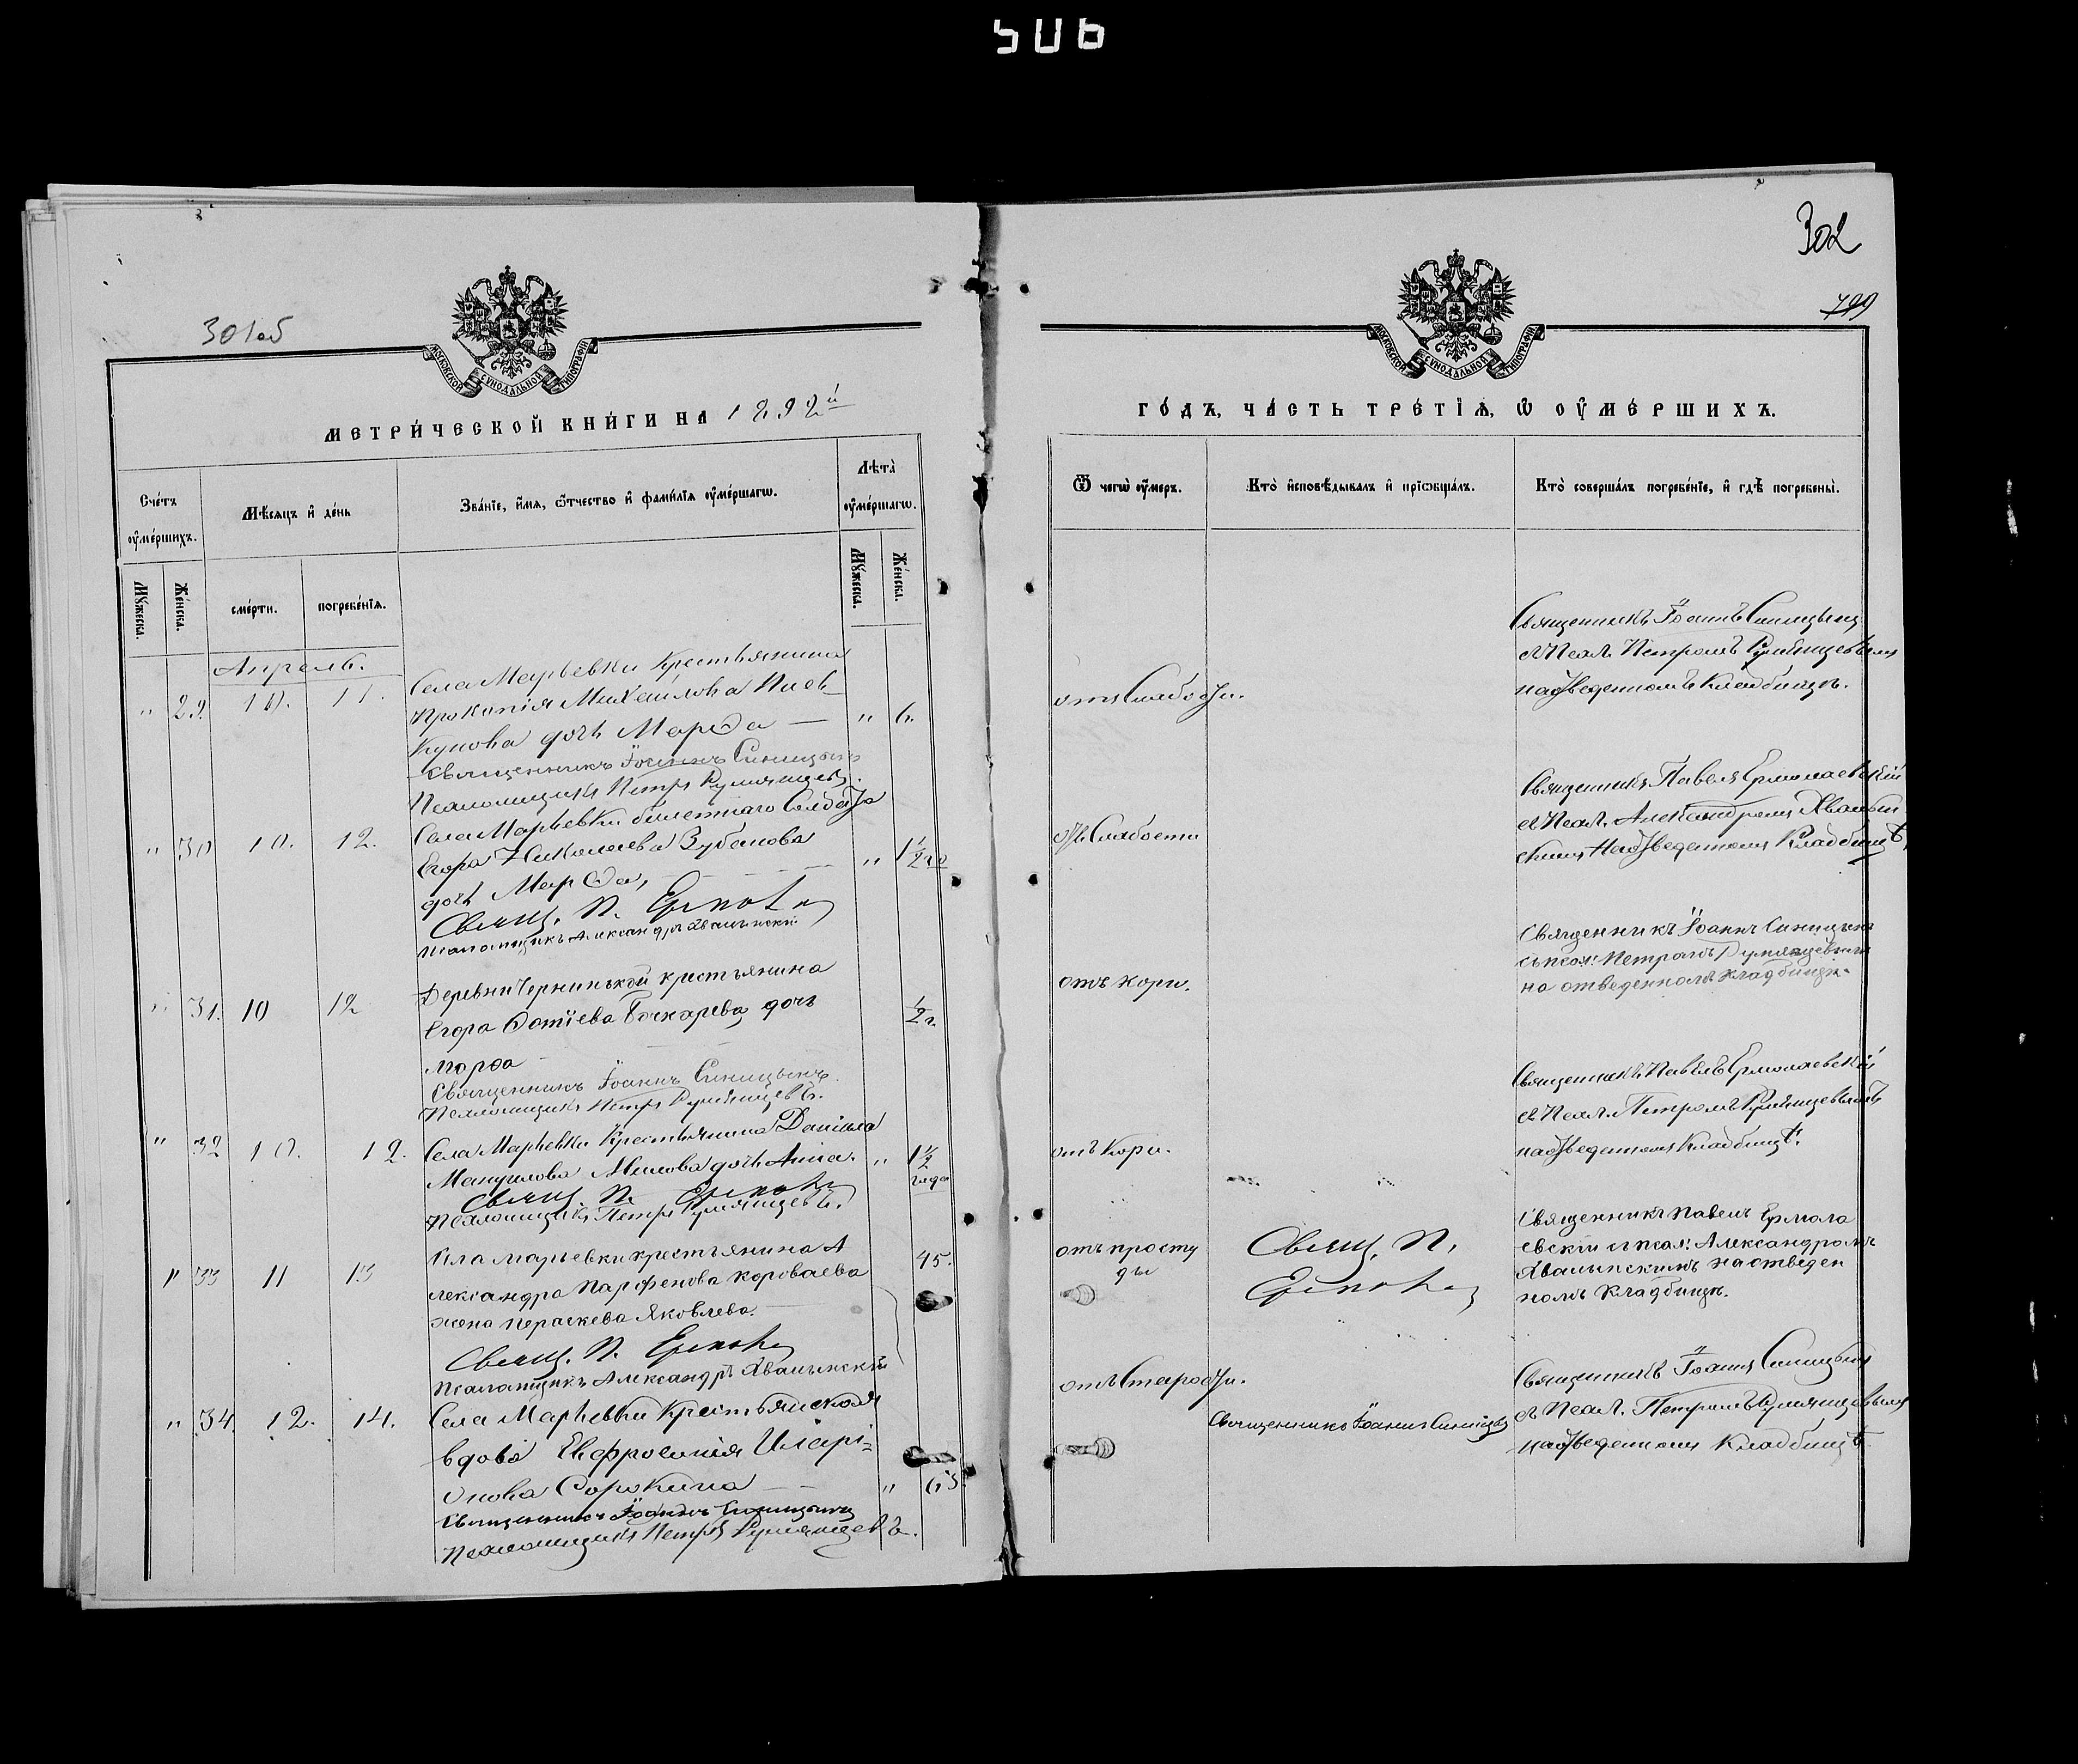 506
302
799
301об
МОСКОВСКОЙ СУНОДАЛЬНОЙ ТИПОГРАФІИ
МОСКОВСКОЙ СУНОДАЛЬНОЙ ТИПОГРАФІИ
МЕТРИ́ЧЕСКОЙ КНИ́ГИ НА 1892й
ГО́ДЪ, ЧА́СТЬ ТРЕ́ТІѦ, Ѿ ОУ҆МЕ́РШИХЪ.
Сче́тъ оу҆ме́ршихъ.
Мѣ́сяцъ и҆ де́нь
Зва́ніе, и҆́мя, ѻ҆́тчество и҆ фами́лія оу҆ме́ршагѡ.
Лѣта̀ оу҆ме́ршагѡ.
Ѿ чегѡ̀ оу҆́меръ.
Кто̀ и҆сповѣ́дывалъ и҆ прїѡбща́лъ.
Кто̀ соверша́лъ погребе́ніе, и҆ гдѣ̀ погребены̀.
Мꙋ́жеска.
Же́нска.
сме́рти.
погребе́нія.
Мꙋ́жеска.
Же́нска.
Апрель.
" 29. 10. 11.
Села Марьевки Крестьянина
Прокопія Михайлова Пиев-
кунова дочь Марѳа — " 6.
Священникъ Іоаннъ Синицынъ
Псаломщикъ Петръ Румянцевъ.
отъ Слабости.
Священникъ Іоаннъ Синицынъ
съ Псал. Петромъ Румянцевымъ
на отведенномъ Кладбищѣ.
" 30 10. 12.
Села Марьевки билетнаго Солдата
Егора Николаева Зубанова
дочь Марѳа, " 1½ го
Свящ. П. Ермол
Псаломщикъ Александръ Хвалынскій
отъ Слабости
Священникъ Павелъ Ермолаевскій
съ Псал. Александромъ Хвалын
скимъ на отведенномъ Кладбищѣ,
" 31. 10 12
Деревни Чернинькой крестьянина
Егора Фотіева Бочкарева дочь
Марѳа ½ г.
Священникъ Іоаннъ Синицынъ.
Псаломщикъ Петръ Румянцевъ.
отъ кори.
Священникъ Іоаннъ Синицынъ
съ псал: Петромъ Румянцевымъ
на отведенномъ кладбищѣ.
" 32 10. 12.
Села Марьевки Крестьянина Даніила
дочь Анна. " 1½ года
Свящ. П. Ермол
Псаломщикъ Петръ Румянцевъ.
отъ Кори.
Священникъ Павелъ Ермолаевскій
съ Псал. Петромъ Румянцевымъ
на отведенномъ Кладбищѣ.
" 33 11 13
Села марьевки крестьянина А
лександра Парфенова короваева
жена Параскева Яковлева. 45.
Свящ. П. Ермол
Псаломщикъ Александръ Хвалынскій
отъ просту
ды
Свящ. П.
Ермол
Священникъ Павелъ Ермола
евскій съ псал: Александромъ
Хвалынскимъ на отведен
номъ кладбищѣ.
" 34 12. 14.
Села Марьевки Крестьянская
вдова Евфросинія Иларі-
онова Сорокина — " 63.
Священникъ Іоаннъ Синицынъ
Псаломщикъ Петръ Румянцевъ.
отъ Старости.
Священникъ Іоаннъ Синицынъ
Священникъ Іоаннъ Синицынъ
съ Псал. Петромъ Румянцевымъ
на отведенномъ Кладбищѣ